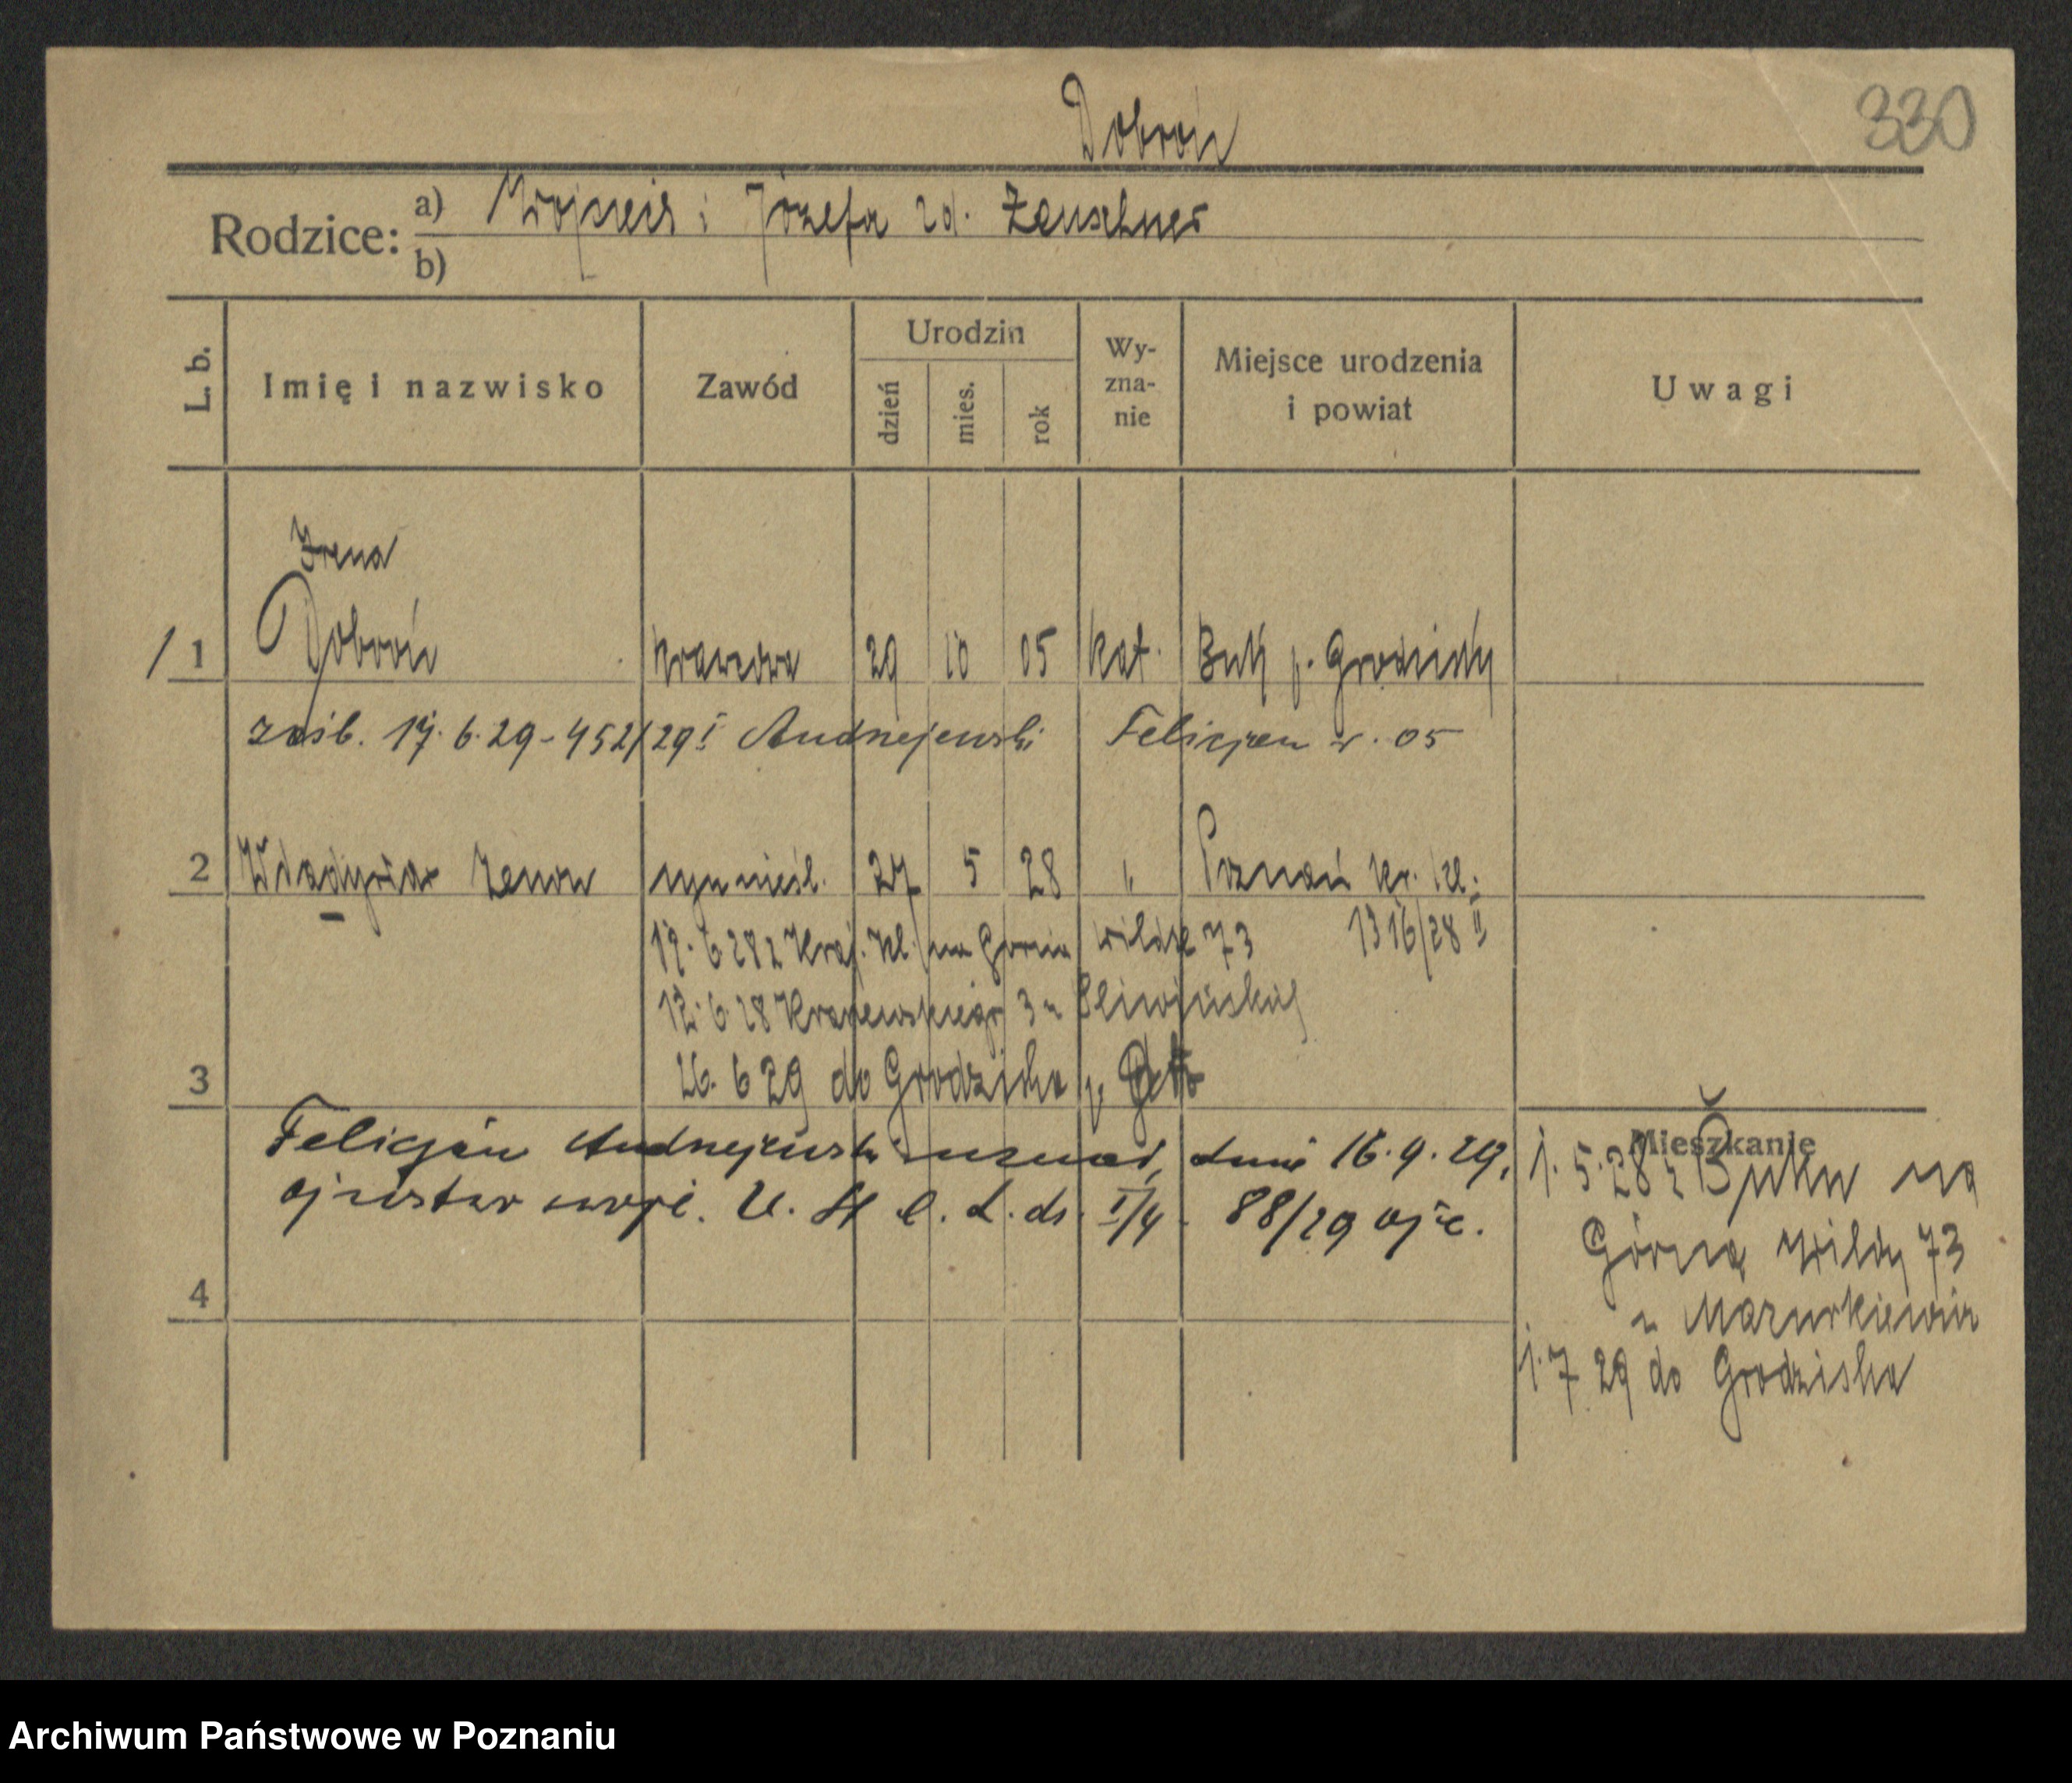 Dobroń
330
Rodzice: a) Wojciech i Józefa zd. Zeuschner
b)
L. b. Imię i nazwisko Zawód Urodzin dzień mies. rok Wy-zna-nie Miejsce urodzenia i powiat Uwagi
Irena
/ 1 Dobroń krawcowa 29 10 05 kat. Buk p. Grodzisk
zaśb. 17. 6. 29 - 452/29 I Andrzejewski Felicjan r. 05
2 Władysław Zenon syn nieśl. 27 5 28 " Poznań kr. kl.
1316/28 II
19. 6 28 z Kraj. Kl. na Górna Wilda 73
12. 6. 28 Kraszewskiego 3 u Śliwińskiej
3 26. 6 29 do Grodziska p.
Felicjan Andrzejewski uznał, dnia 16. 9. 29,
ojcostwo swoje. U. St. C. L. dz. I/4. 88/29 ojc.
4
Mieszkanie
1. 5. 28 z Buku na
Górną Wildę 73
u Mazurkiewicz
1. 7 29 do Grodziska
Archiwum Państwowe w Poznaniu